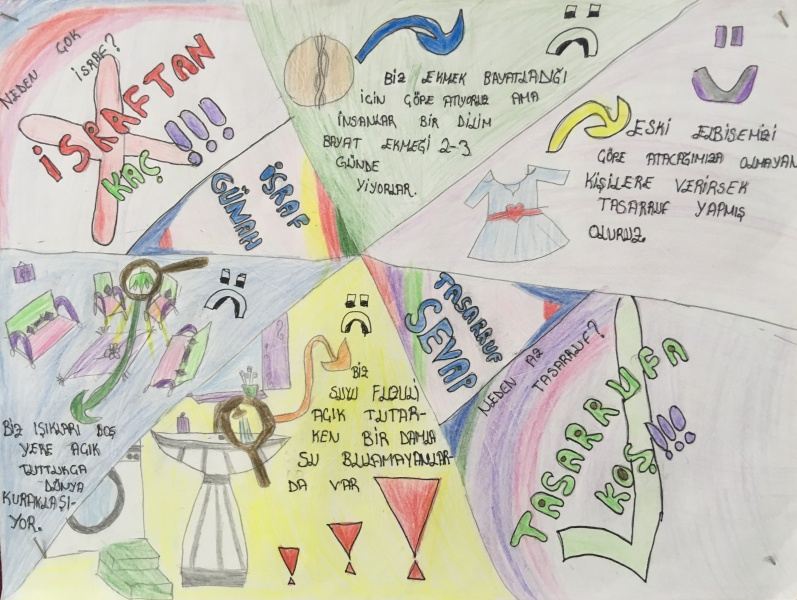 NEDEN ÇOK
İSRAF?
İSRAFTAN
KAÇ !!!
İSRAF
GÜNAH
BİZ EKMEK BAYATLADIĞI
İÇİN GÖRE ATIYORUZ AMA
İNSANLAR BİR DİLİM
BAYAT EKMEĞİ 2-3
GÜNDE
YİYORLAR.
ESKİ ELBİSEMİZİ
GÖRE ATACAĞIMIZA OLMAYAN
KİŞİLERE VERİRSEK
TASARRUF YAPMIŞ
OLURUZ.
BİZ IŞIKLARI BOŞ
YERE AÇIK
TUTTUKÇA
DÜNYA
KURAKLAŞI-
YOR.
BİZ
SUYU FUZULİ
AÇIK TUTAR-
KEN BİR DAMLA
SU BULAMAYANLAR-
DA VAR
TASARRUF
SEVAP
NEDEN AZ
TASARRUF?
TASARRUFA
KOŞ!!!